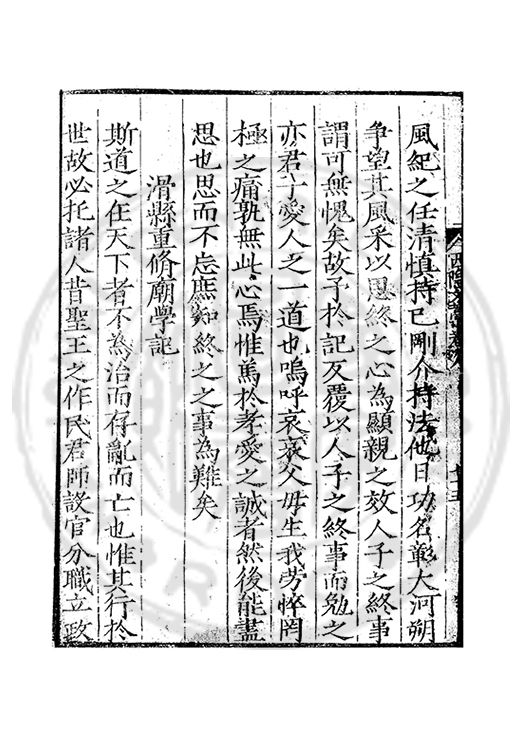 風紀之任清慎持已剛介持法他日功名彰大河朔
争望其風采以思終之心為顯親之效人子之終事
謂可無愧矣故予於記反覆以人子之終事而勉之
亦君子愛人之一道也嗚呼哀哀父母生我劳悴罔
極之痛孰無此心焉惟篤於孝愛之誠者然後能盡
思也思而不忘庶知終之之事為難矣
滑縣重修廟學記
斯道之在天下者不為治而存亂而亡也惟其行於
世故必托諸人昔聖王之作民君師設官分職立政